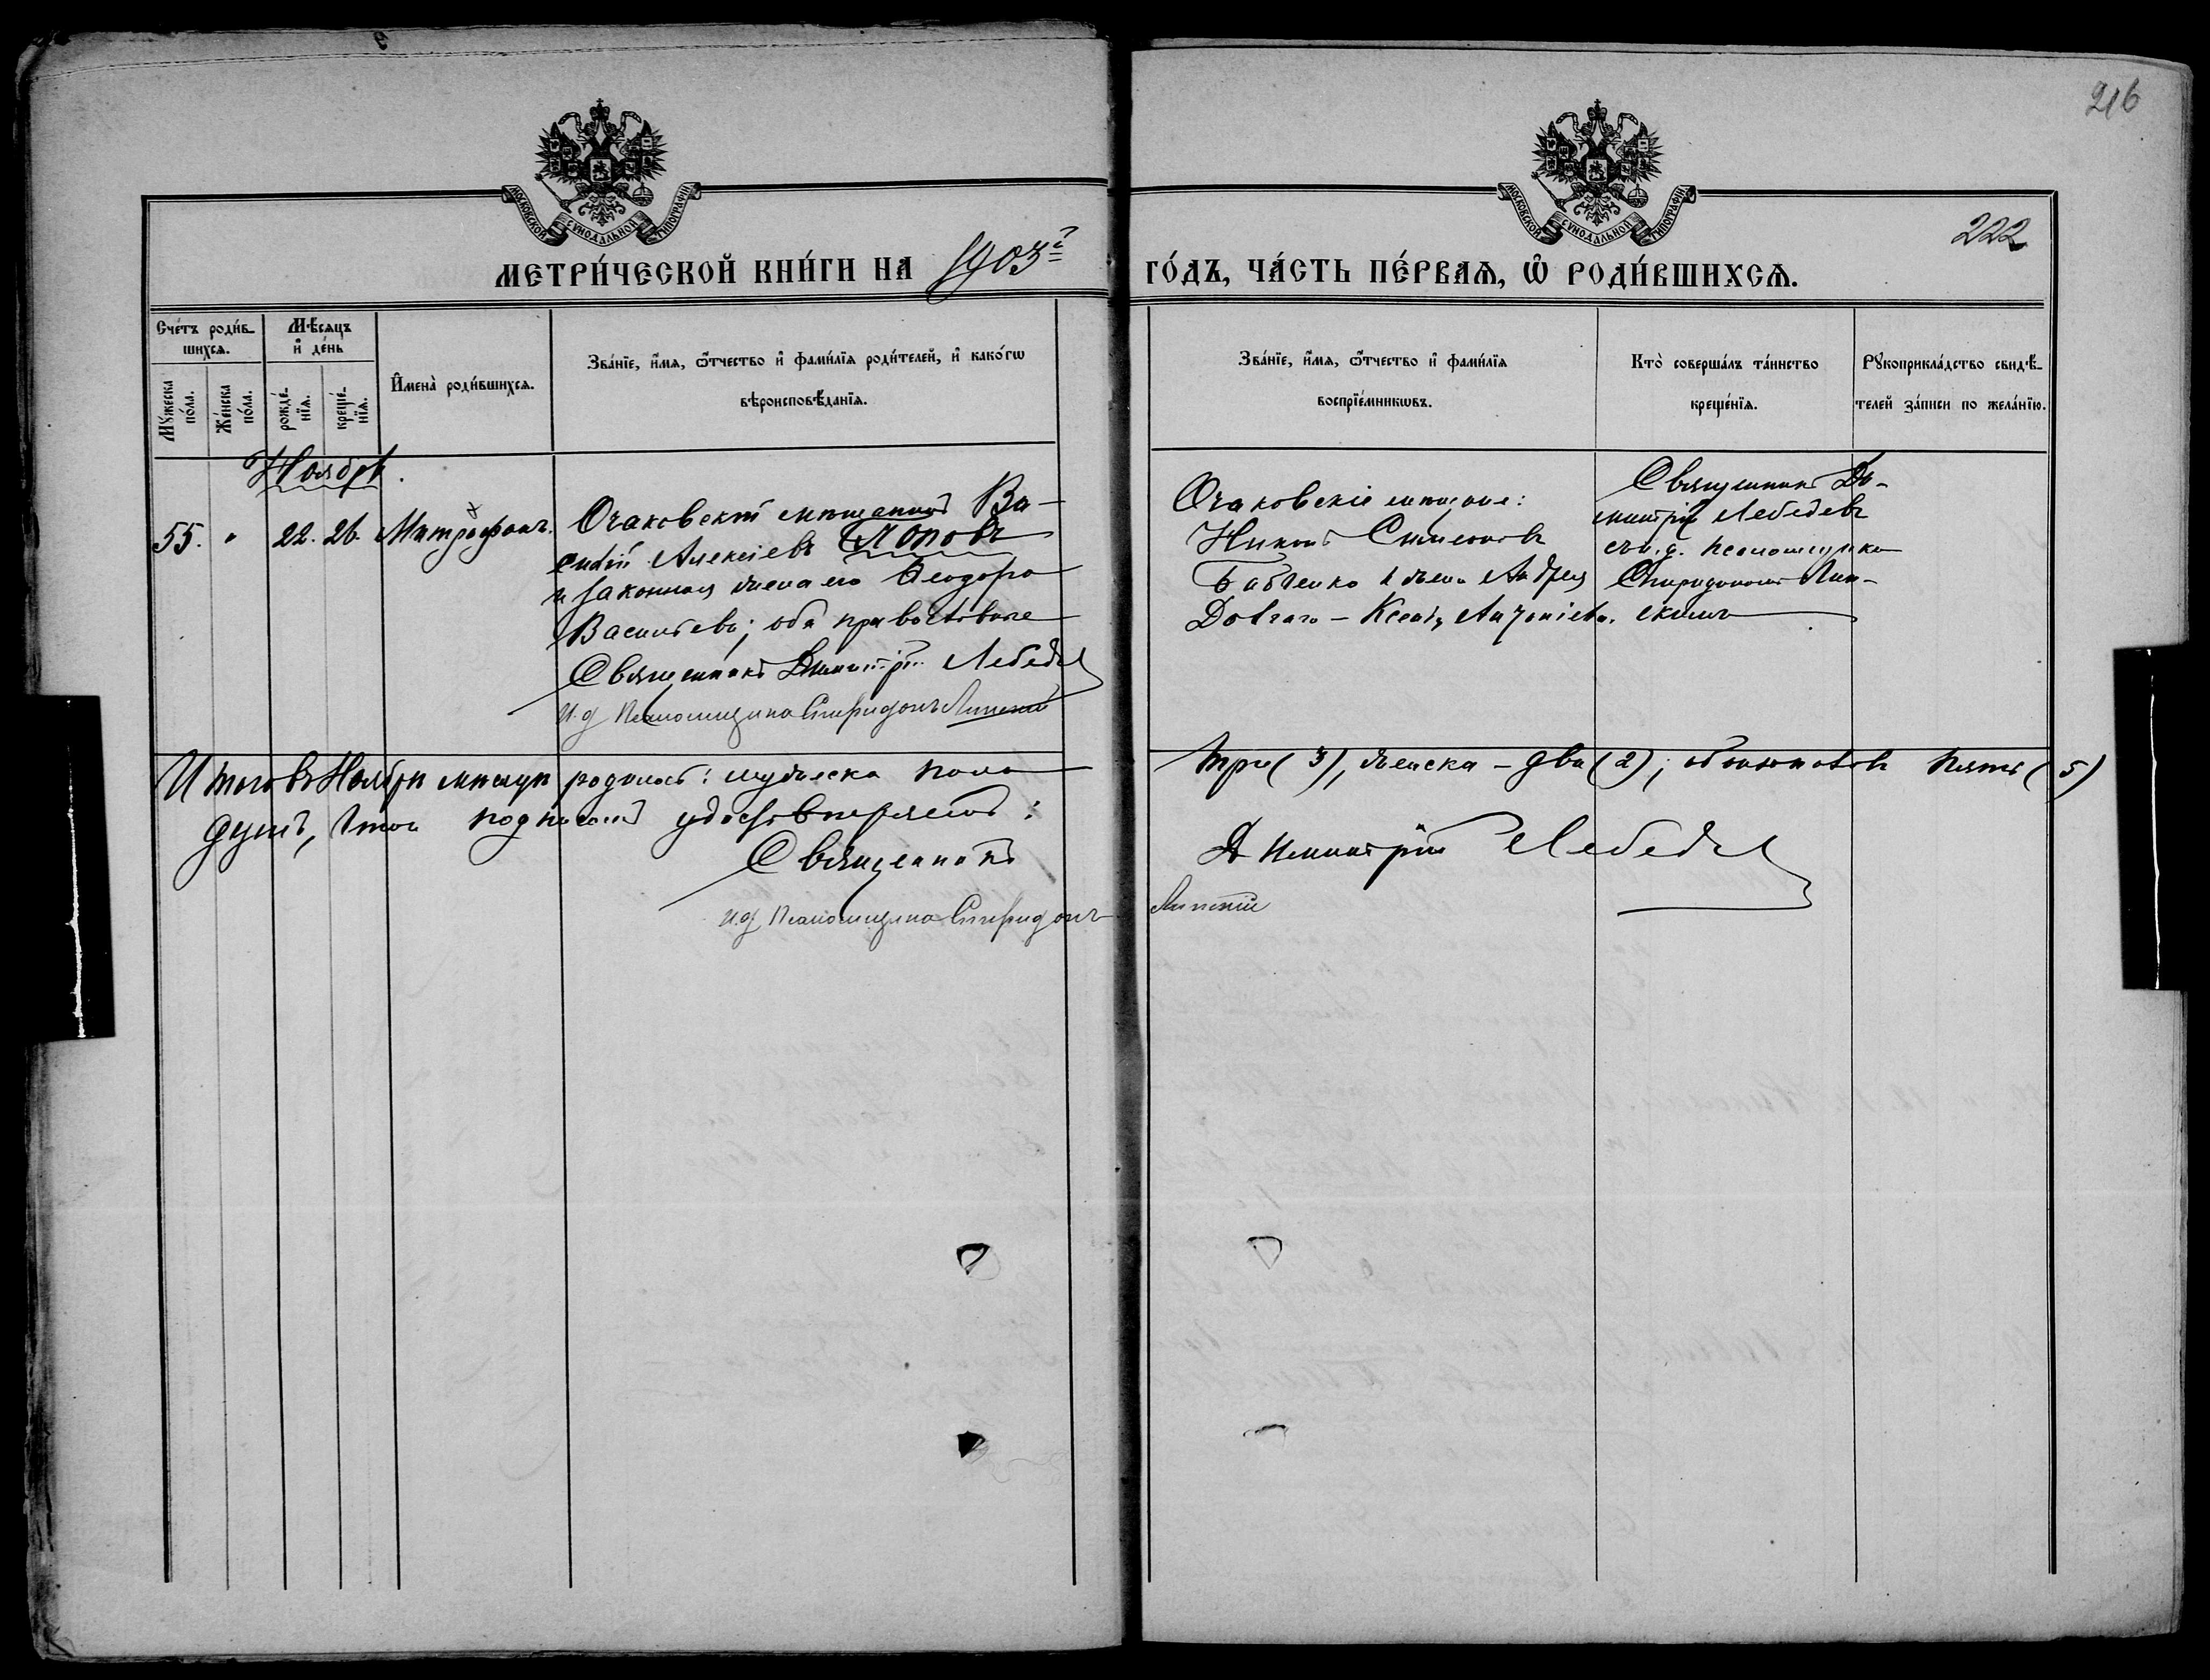 216
МОСКОВСКОЙ СѴНОДАЛЬНОЙ ТИПОГРАФІИ
МОСКОВСКОЙ СѴНОДАЛЬНОЙ ТИПОГРАФІИ
222
МЕТРИ́ЧЕСКОЙ КНИ́ГИ НА 1903 г
ГО́ДЪ, ЧА́СТЬ ПЕ́РВАѦ, Ѡ҆ РОДИ́ВШИХСѦ.
Сче́тъ роди́в-
шихсѧ.
Мѣ́сѧцъ
и҆ де́нь
Мꙋ́жеска
по́ла.
Же́нска
по́ла.
рожде́-
нїѧ.
креще́-
нїѧ.
И҆мена̀ роди́вшихсѧ.
Зва́нїе, и҆́мѧ, ѻ҆́тчество и҆ фами́лїѧ роди́телей, и҆ како́гѡ
вѣроисповѣ́данїѧ.
Зва́нїе, и҆́мѧ, ѻ҆́тчество и҆ фами́лїѧ
воспрїе́мникѡвъ.
Кто̀ соверша́лъ та́инство
креще́нїѧ.
Рꙋкоприкла́дство свидѣ́-
телей за́писи по жела́нїю.
Ноябрь.
55. " 22. 26. Митрофанъ.
Очаковскій мѣщанинъ Ви-
Алексіевъ Поповъ
и законная жена его Ѳеодора
Васильева; оба православные
Священникъ Димитрій Лебедевъ
И. д. Псаломщика Спиридонъ Липскій
Очаковскіе мѣщане:
Никонъ Симеоновъ
Бабенко и жена Андрея
Довгаго - Ксенія Антоніева.
Священникъ Ди-
митрій Лебедевъ
съ и. д. псаломщика
Спиридономъ Лип-
скимъ
Итого въ Ноябрѣ мѣсяцѣ родилось: мужеска пола
три (3), женска - два (2); обоихъ половъ пять (5)
душъ, что подписомъ удостовѣряемъ:
Священникъ Димитрій Лебедевъ
И. д. Псаломщика Спиридонъ Липскій